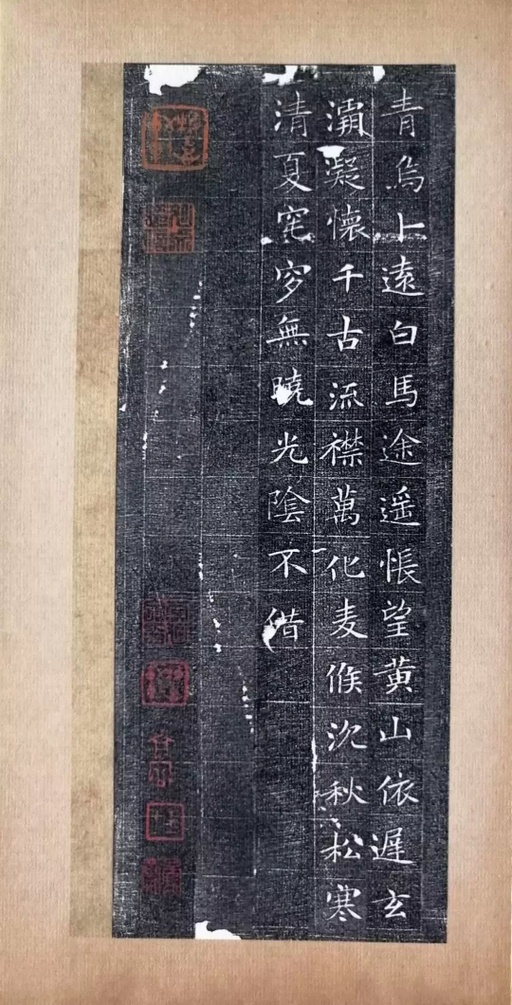 青烏卜遠白馬途遥悵望黄山依遲玄
灞凝懷千古流襟萬化麦候沈秋松寒
清夏窀穸無曉光陰不借